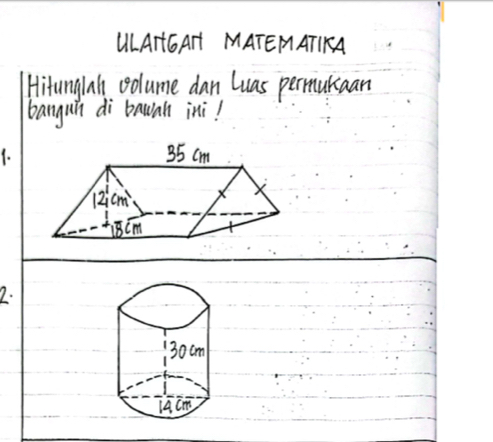 ULANGAN MATEMATIKA
Hitunglah volume dan Luas permukaan
bangun di bawah ini !
1.
35 cm
12 cm
18 cm
2.
30 cm
14 cm